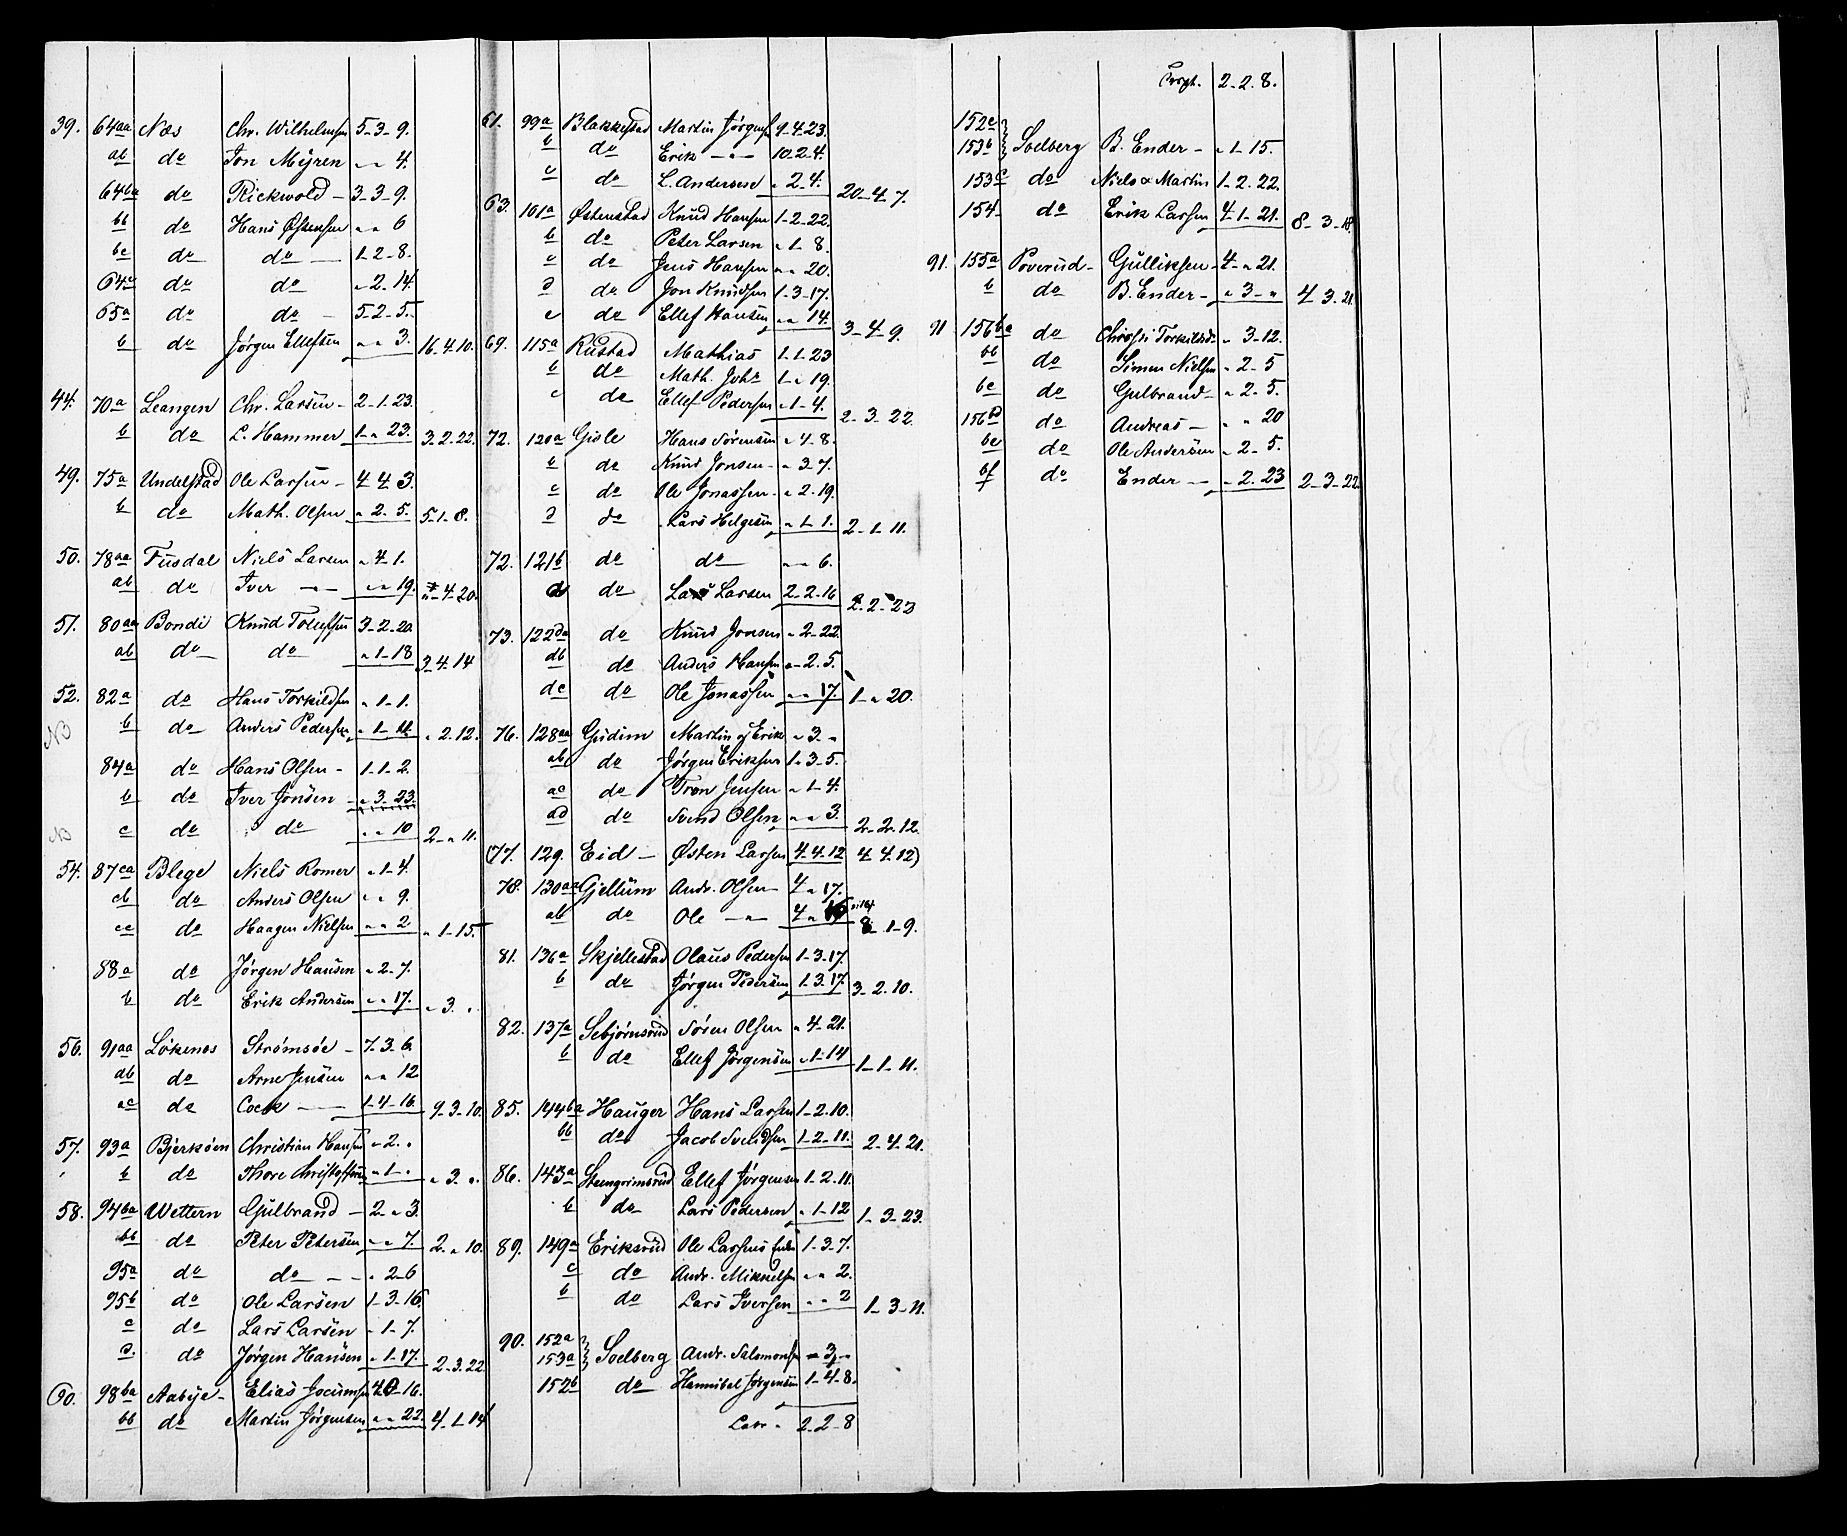 39. 64aa Næs Chr. Wilhelmsen 5-3-9.
ab do Jon Myren " " 4.
64ba do Rickwold - 3-3-9.
bb do Hans Østensen " " 6
bc do do 1-2-8.
64c do do " 2. 14.
65a do do 5-2-5.
b do Jørgen Ellefsen " " 3. 16. 4. 10.
44. 70a Leangen Chr. Larsen - 2-1-23.
b do L. Hammer 1 " 23. 3. 2. 22.
49. 75a Undelstad Ole Larsen - 4 4 3.
b do Math. Olsen " 2. 5. 5-1-8.
50. 78aa Fusdal Niels Larsen " 4-1.
ab do Iver - " - " " 19. " 4-20.
51. 80aa Bondi Knud Tollefsen 3-2-20.
ab do do " 1-18 3-4. 14
52. 82a do Hans Torkildsen " 1-1.
NB b do Anders Pedersen " 1-11. " 2. 12.
84a do Hans Olsen - 1-1-2.
b do Iver Jonsen - " 3. 23.
NB c do do " " 10 2 " 11.
54. 87ca Blege Niels Romer " 1-4.
cb do Anders Olsen " " 9.
cc do Haagen Nielsen " " 2. " 1-15.
88a do Jørgen Hansen " 2-7.
b do Erik Andersen " " 17. " 3. "
56. 91aa Løkenes Strømsöe - 7-3-6.
ab do Arne Jensen " " 12
ac do Cock - 1-4-16. 9. 3. 10.
57. 93a Bjerkøen Christian Hansen " 2. "
b do Thore Christoffersen " 1- " " 3. "
58. 94ba Wettern Gulbrand - 2- " 3.
bb do Peter Petersen " " 7. 2. " 10.
95a do do - - " 2-6
95b do Ole Larsen 1-3-16.
c do Lars Larsen " 1-7.
d. do Jørgen Hansen " 1-17. 2-3. 22.
60. 98ba Aabye - Elias Jocumsen 4 0-16.
bb do Martin Jørgensen " " 22. 4-1-14
61. 99a Blakkestad Martin Jørgens. 9-4. 23.
b do Erik - " - 10-2-4.
c do L. Andersen " 2-4. 20-4-7.
63. 101a Østenstad Knud Hansen 1-2-22.
b do Peter Larsen " 1-8.
c do Jens Hansen " " 20.
d do Jon Knudsen 1-3-17.
e do Ellef Hansen " " 14. 3-4-9.
69. 115a Rustad Mathias 1-1-23
b do Math. Johs 1- " 19.
c do Ellef Pedersen " 1-4. 2-3-22.
72. 120a Gisle Hans Sørensen " 4-8.
b do Knud Jonsen - " 3-7.
c do Ole Jonassen - " 2-19.
d do Lars Helgesen " 1-1. 2-1-11.
72. 121b do do " " 6.
d do Lars Larsen 2-2-16 2-2-23
73. 122da do Knud Jonsen " 2-22.
db do Anders Hansen " 2. 5.
dc do Ole Jonassen " " 17. 1- " 20.
76. 128aa Gudim Martin og Erik " 3. "
ab do Jørgen Eriksen 1-3-5.
ac do Tron Jensen " 1-4.
ad do Svend Olsen " " 3. 2-2. 12.
(77. 129. Eid - Østen Larsen 4-4. 12 4. 4. 12)
78. 130aa Gjellum Andr. Olsen - 4 " 17.
ab do Ole - " - 4 " 16 8- 1-9.
81. 136a Skjellestad Olaus Pedersen 1-3-17.
b do Jørgen Pedersen 1-3. 17. 3-2. 10.
82. 137a Sebjørnsrud Søren Olsen " 4-21.
b do Ellef Jørgensen " 1-14 1-1-11.
85. 144ba Hauger Hans Larsen 1-2-10.
bb do Jacob Svendsen 1-2-11. 2-4. 21.
86. 143a Steengrimsrud Ellef Jørgensen 1-2. 11.
b do Lars Pedersen " 1-12 1-3-23.
89. 149a Eriksrud Ole Larsens Enke 1-3-7.
c do Andr. Mikkelsen " " 2.
b do Lars Iversen " " 2 1-3-11.
90. 152a
153a Solberg Andr. Salomons. " 3- "
152b do Hannibal Jørgensen 1-4-8.
Latr - 2-2-8
Trspt. 2-2-8.
152c
153b Solberg B. Ender - " 1-15.
153c do Niels & Martin 1-2. 22.
154 do Erik Larsen 4-1-21. 8-3-18.
91. 155a Poverud - Gulliksen - 4- " 21.
b do B. Ender - " 3- " 4 3. 21.
91 156ba do Christi Torkildsd. " 3-12.
bb do Simen Nielsen " 2-5
bc do Gulbrand - " 2-5.
156bd do Andreas - " " 20
be do Ole Andersen " 2-5.
bf do Ender - " 2. 23 2-3-22.